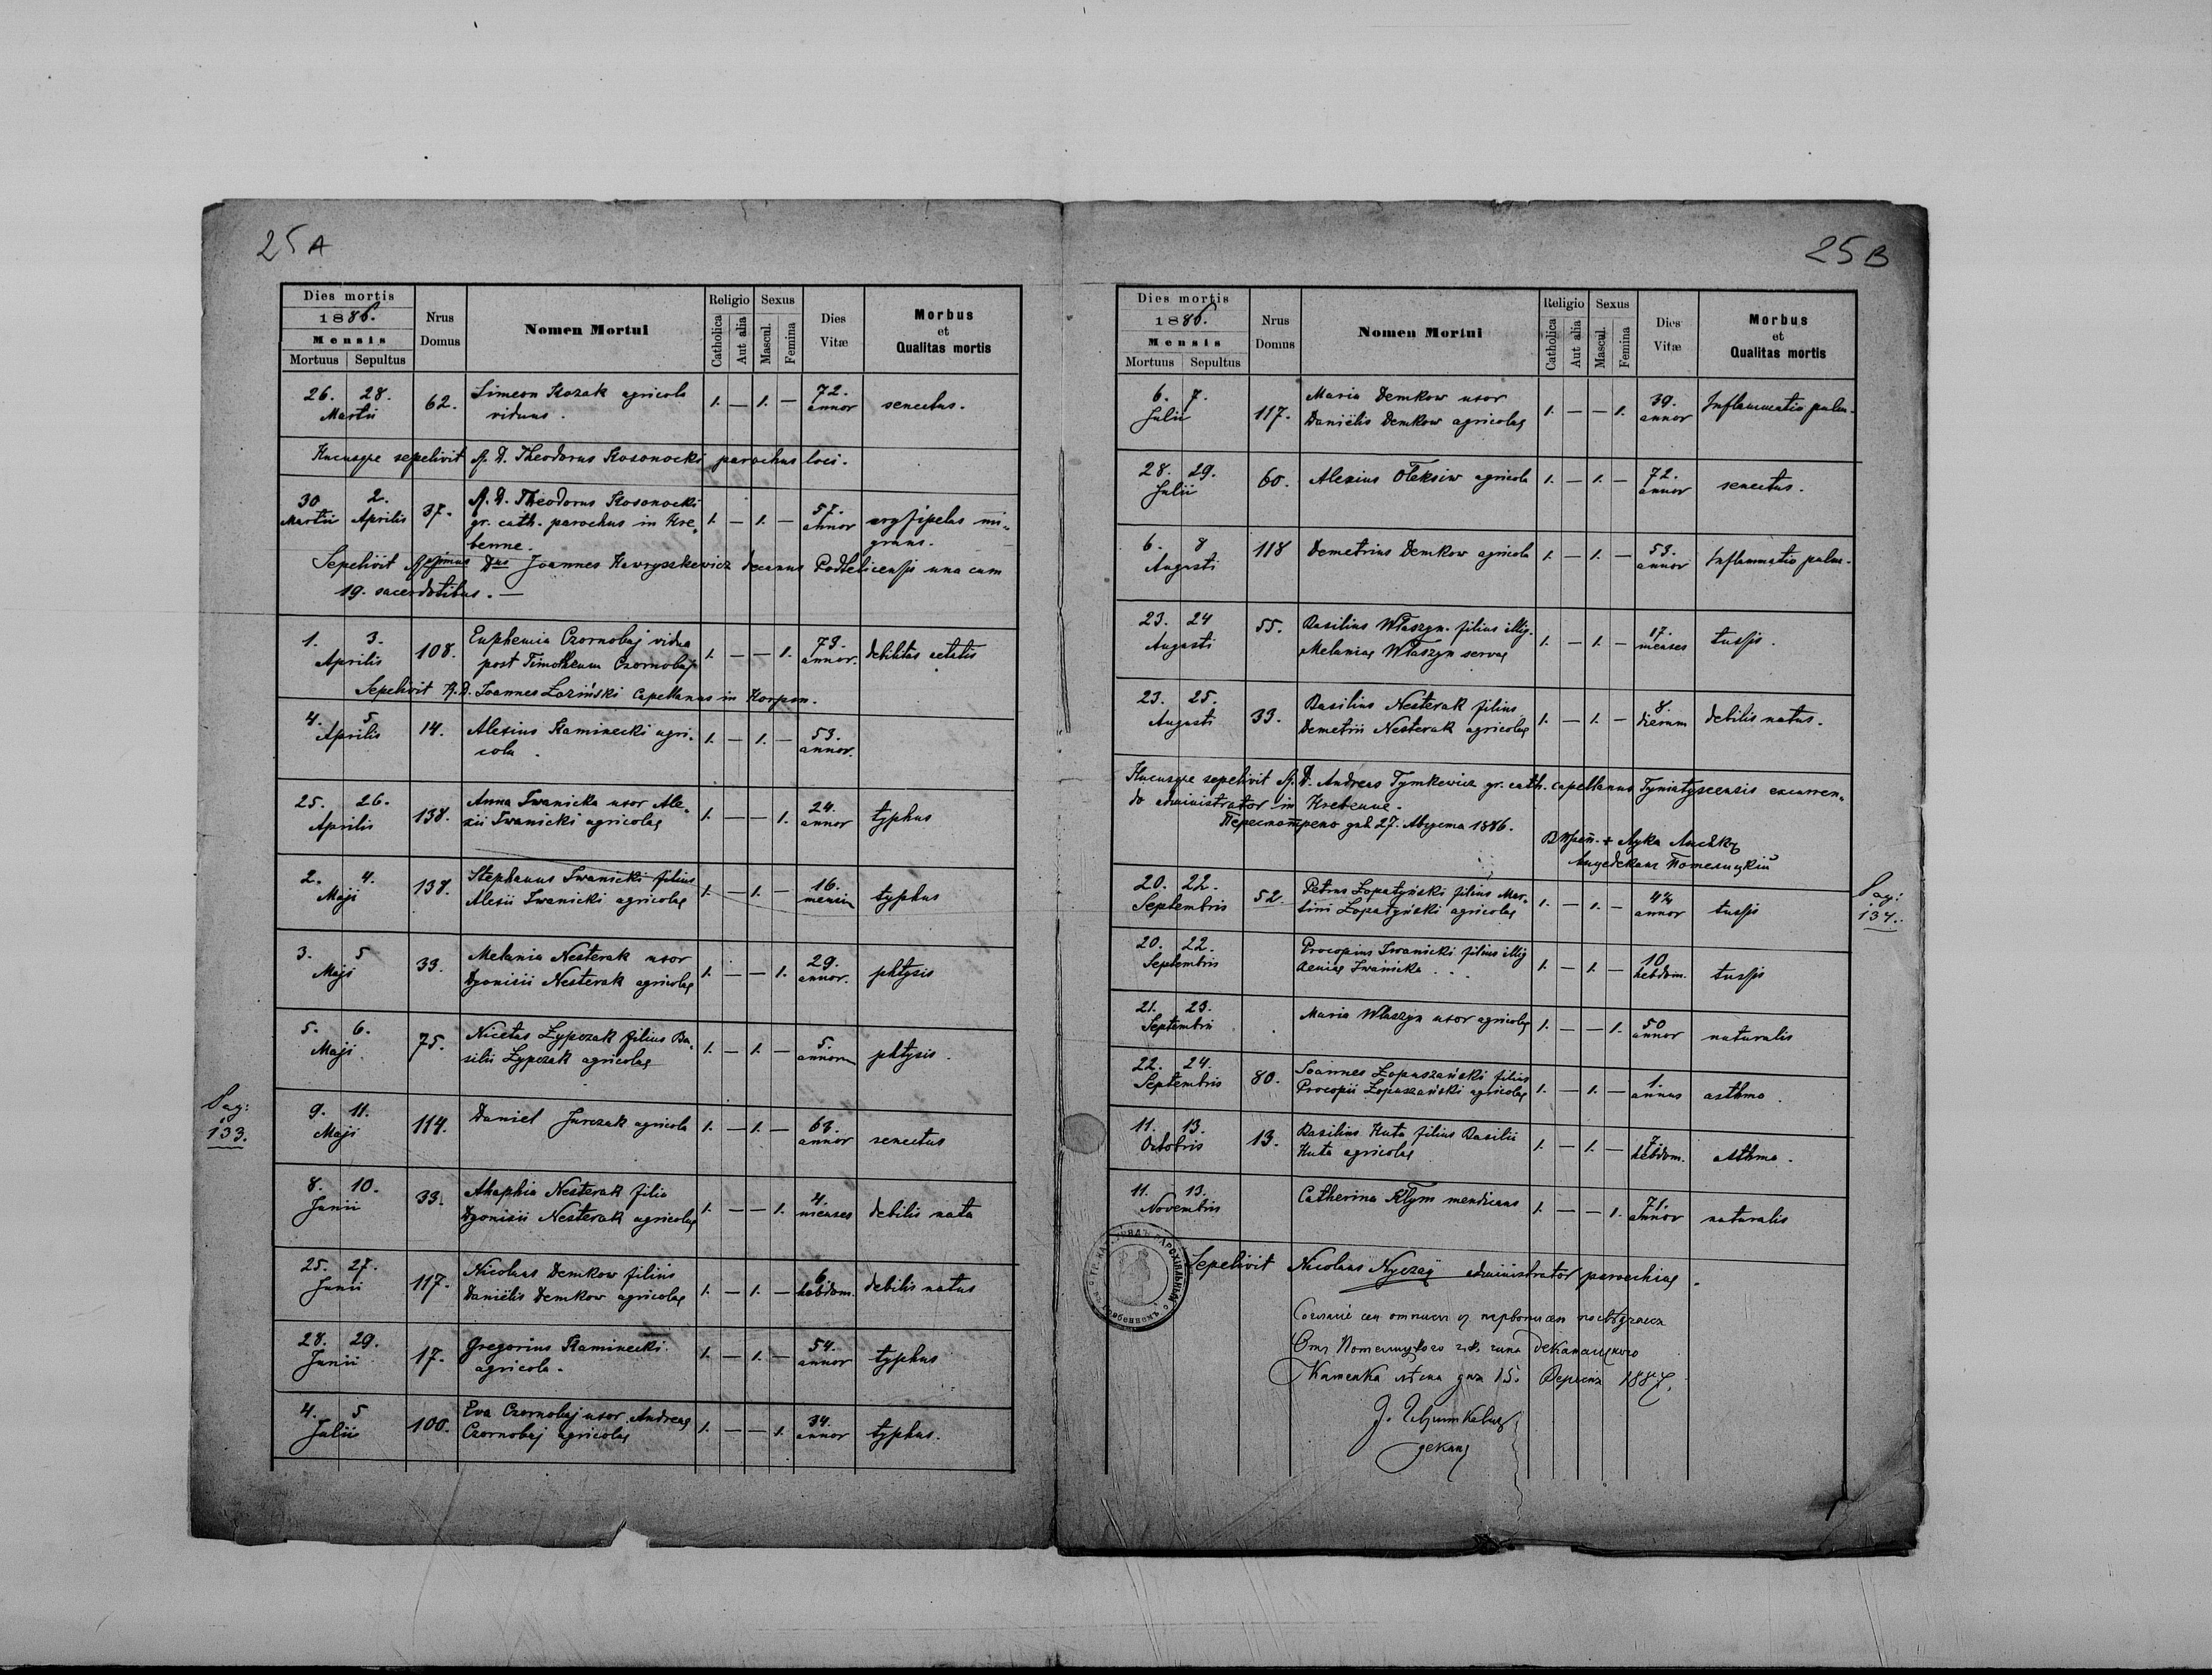 25 A
Dies mortis
1886.
Mensis
Mortuus Sepultus
Nrus
Domus
Nomen Mortui
Religio
Catholica
Aut alia
Sexus
Mascul.
Femina
Dies
Vitæ
Morbus
et
Qualitas mortis
26. 28. 62. Simeon Kozak agricola 1. — 1. — 72. senectus.
Martii viduus. annor
Hucusque sepelivit A. D. Theodorus Kosonocki parochus loci.
30 2. 37. A. D. Theodorus Kosonocki 57.
Martii Aprilis gr. cath. parochus in Hre- 1. — 1. — annor erysipelas mi-
benne. grans.
Sepelivit Dus Joannes Hawryszkewicz decanus una cum
19. sacerdotibus. —
1. 3. 108. Euphemia Czornobaj vidua 1. — — 1. 79. debilitas aetatis
Aprilis post Timotheum Czornobaj annor.
Sepelivit A. D. Joannes Łoziński Capellanus in
4. 5. 14. Alexius Kaminecki agri- 1. — 1. — 53.
Aprilis cola. annor.
25. 26. 138. Anna Iwanicka uxor Ale- 1. — — 1. 24. typhus
Aprilis xii Iwanicki agricolae annor
2. 4. 138. Stephanus Iwanicki filius 1. — 1. — 16. typhus
Maji Alexii Iwanicki agricolae
3. 5 33. Melania Nesterak uxor 1. — — 1. 29. phtysis
Maji Dyonisii Nesterak agricolae annor.
5. 6. 75. Nicetas Łypczak filius Ba- 1. — 1. — 5. phtysis.
Maji silii Łypczak agricolae
Pag:
133.
9. 11. 114. Daniel Jurczak agricola 1. — 1. — 63. senectus
Maji annor
8. 10. 33. Ahaphia Nesterak filia 1. — — 1. 4. debilis nata
Junii Dyonisii Nesterak agricolae menses
25. 27. 117. Nicolaus Demkow filius 1. — 1. — 6. debilis natus
Junii Daniëlis Demkow agricolae hebdom.
28. 29. 17. Gregorius Kaminecki 1. — 1. — 54. typhus
Junii agricola. annor
4. 5 100. Eva Czornobaj uxor Andreae 1. — — 1. 34. typhus.
Julii Czornobaj agricolae annor
25 B
Dies mortis
1886.
Mensis
Mortuus Sepultus
Nrus
Domus
Nomen Mortui
Religio
Catholica
Aut alia
Sexus
Mascul.
Femina
Dies
Vitæ
Morbus
et
Qualitas mortis
6. 7. 117. Maria Demkow uxor 1. — — 1. 39. Inflammatio pulm.
Julii Daniëlis Demkow agricolae annor
28. 29. 60. Alexius Oleksiw agricola 1. — 1. — 72. senectus.
Julii annor
6. 8 118 Demetrius Demkow agricola 1. — 1. — 53. Inflammatio pulm.
Augusti annor
23. 24 55. Basilius Właszyn filius illig. 1. — 1. — 17. tussis.
Augusti Melaniae Właszyn servae menses
23. 25. 33. Basilius Nesterak filius 1. — 1. — 8. debilis natus.
Augusti Demetrii Nesterak agricolae dierum
Hucusque sepelivit A. D. Andreas Tymkewicz gr. cath. capellanus excurren-
do administrator in Hrebenne.
27. Августа 1886.
20. 22. 52. Petrus Łopatyński filius Mar- 1. — 1. — tussis
Septembris tini Łopatyński agricolae annor
Pag:
134.
20. 22. Procopius Iwanicki filius illig 1. — 1. — 10 tussis
Septembris Iwanicka hebdom.
21. 23. Maria Właszyn uxor agricolae 1. — — 1. 50 naturalis
Septembris annor
22. 24. 80. Joannes Łopuszański filius 1. — 1. — 1. asthma.
Septembris Procopii Łopuszański agricolae annus
11. 13. 13. Basilius Huta filius Basilii 1. — 1. — 7. asthma.
Octobris Huta agricolae hebdom.
11. 13. Catherina Kłym mendicans 1. — — 1. 71. naturalis
Novembris annor
Sepelivit Nicolaus Nyczaj administrator parochiae.
15. 1887.